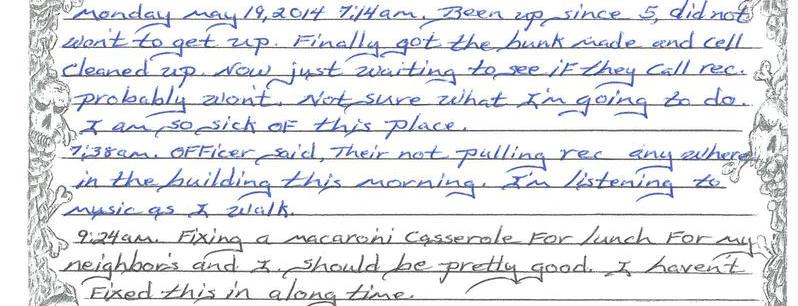 Monday may 19, 2014 7:14am. Been up since 5, did not
won't to get up. Finally got the bunk made and cell
cleaned up. Now just waiting to see if they call rec.
probably won't. Not sure what I'm going to do.
I am so sick of this place.
7:38am. Officer said, Their not pulling rec any where
in the building this morning. I'm listening to
music as I walk.
9:24am. Fixing a macaroni Casserole For lunch For my
neighbors and I. should be pretty good. I haven't
Fixed this in along time.